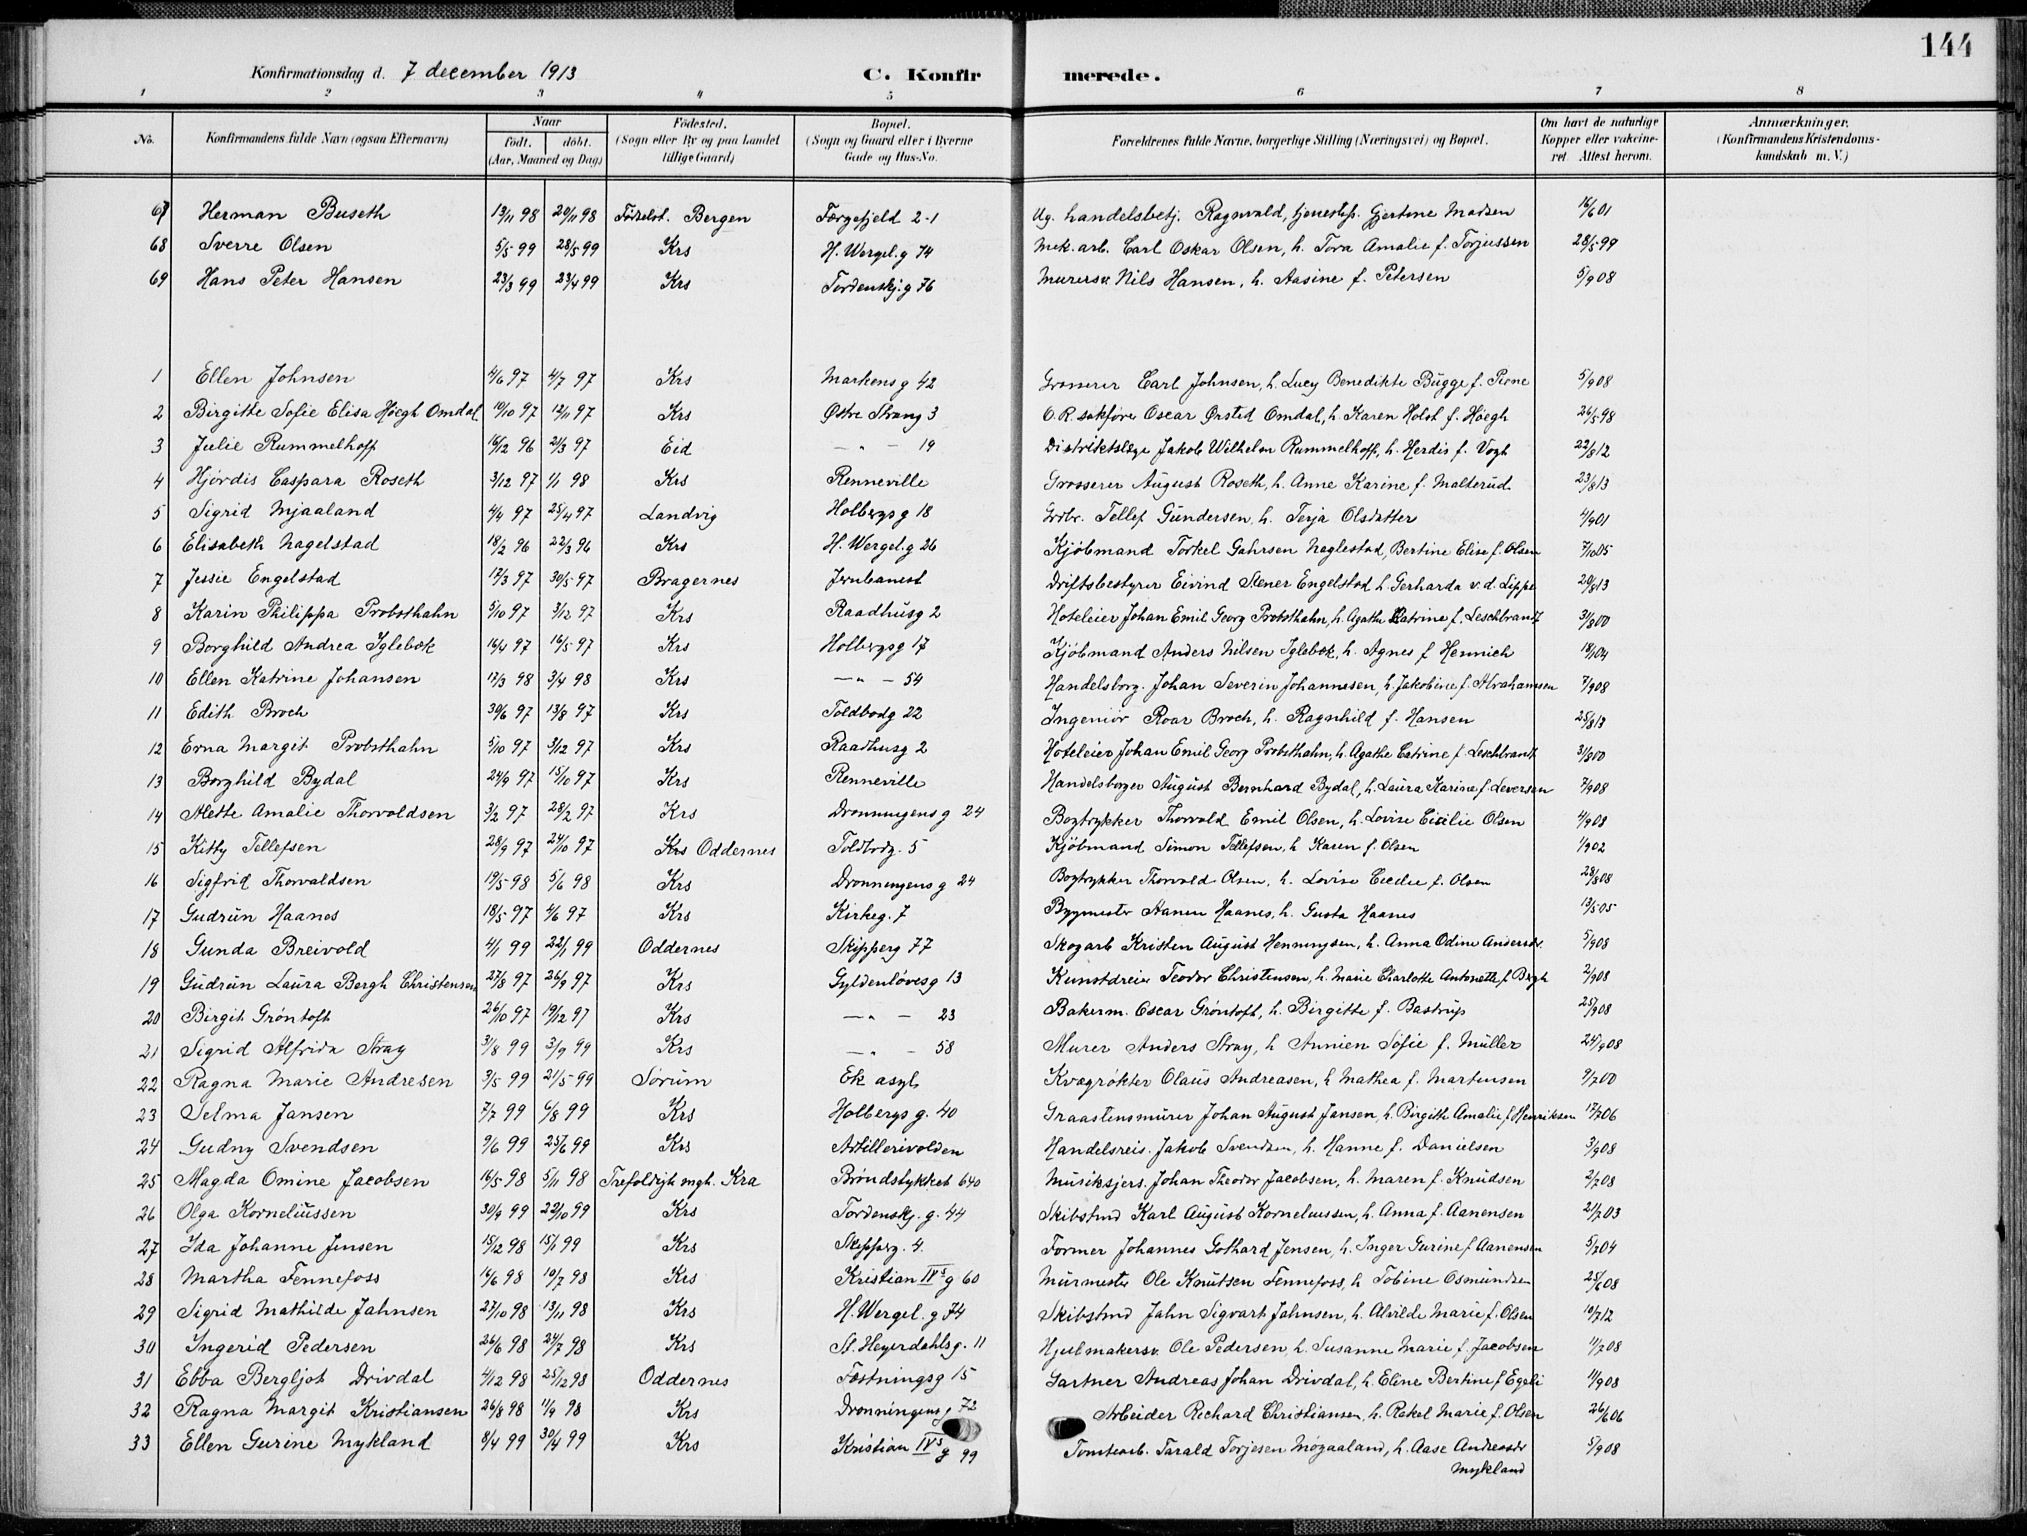 144
Konfirmationsdag d. 7 december 1913 C. Konfirmerede.
1 2 3 4 5 6 7 8
No. Konfirmandens fulde Navn (ogsaa Efternavn) Naar født. døbt. (Aar, Maaned og Dag) Fødested. (Sogn eller By og paa Landet tillige Gaard) Bopæl. (Sogn og Gaard eller i Byerne Gade og Hus-No. Forældrenes fulde Navne, borgerlige Stilling (Næringsvei) og Bopæl. Om havt de naturlige Kopper eller vakcineret. Attest herom. Anmærkninger. (Konfirmandens Kristendomskundskab m. V.)
67 Herman Buseth 13/11 98 20/11 98 Fødselst. Bergen Færgefjeld 2-1 Ug. handelsbetj. Ragnvald, tjenestep. Gjertine Madsen 16/6 01
68 Sverre Olsen 5/5 99 28/5 99 Krs H. Wergel. g 74 Mek. arb. Carl Oskar Olsen, h. Tora Amalie f. Torjussen 28/5 99
69 Hans Peter Hansen 23/3 99 23/4 99 Krs Tordenskj. g 76 Murersv. Nils Hansen, h. Aasine f. Petersen 5/9 08
1 Ellen Johnsen 4/6 97 4/7 97 Krs Markens g 42 Grosserer Carl Johnsen, h. Lucy Benedikte Bugge f. Pirne 5/9 08
2 Birgitte Sofie Elisa Høegh Omdal 10/10 97 12/11 97 Krs Østre Strang 3 O.R. sakføre Oscar Ørsted Omdal, h. Karen Holst f. Høegh 26/5 98
3 Julie Rummelhoff 16/12 96 2/3 97 Eid — " — 19 Distriktslæge Jakob Wilhelm Rummelhoff, h. Herdis f. Vogt 22/8 12
4 Hjørdis Caspara Roseth 3/12 97 1/1 98 Krs Renneville Grosserer August Roseth, h. Anne Karine f. Malterud 23/8 13
5 Sigrid Mjaaland 4/4 97 25/4 97 Landvig Holbergs g 18 Grdbr. Tellef Gundersen, h. Terja Olsdatter 4/9 01
6 Elisabeth Nagelstad 18/2 96 22/3 96 Krs H. Wergel. g 26 Kjøbmand Torkel Gahrsen Neglestad, Bertine Elise f. Olsen 7/10 05
7 Jessie Engelstad 17/3 97 30/5 97 Bragernes Jernbanest Driftsbestyrer Eivind Stener Engelstad h. Gerharda v. d. Lippe 20/8 13
8 Karin Philippa Probsthahn 5/10 97 3/12 97 Krs Raadhusg 2 Hoteleier Johan Emil Georg Probsthahn, h. Agathe Katrine f. Leschbrandt 31/8 00
9 Borghild Andrea Iglebæk 16/4 97 16/5 97 Krs Holbergs g 17 Kjøbmand Anders Nilsen Iglebæk, h. Agnes f Hennich 18/1 04
10 Ellen Katrine Johansen 17/3 98 3/4 98 Krs — " — 54 Handelsborg. Johan Severin Johannesen, h. Jakobine f. Abrahamsen 7/9 08
11 Edith Broch 30/6 97 13/8 97 Krs Toldbodg 22 Ingeniør Roar Broch, h. Ragnhild f. Hansen 25/8 13
12 Erna Margit Probsthahn 5/10 97 3/12 97 Krs Raadhusg 2 Hoteleier Johan Emil Georg Probsthahn, h. Agathe Catrine f. Leschbrandt 31/8 00
13 Borghild Bydal 24/9 97 15/10 97 Krs Renneville Handelsborger August Bernhard Bydal, h. Laura Karine f. Leversen 7/9 08
14 Alette Amalie Thorvaldsen 3/2 97 28/2 97 Krs Dronningens g 24 Bogtrykker Thorvald Emil Olsen, h. Lovise Cicilie Olsen 4/9 08
15 Kitty Tellefsen 28/9 97 24/10 97 Krs Oddernes Toldbodg. 5 Kjøbmand Simon Tellefsen, h Karen f. Olsen 1/9 02
16 Sigfrid Thorvaldsen 19/5 98 5/6 98 Krs Dronningens g 24 Bogtrykker Thorvald Olsen, h. Lovise Cecilie f. Olsen 28/8 08
17 Gudrun Haanes 18/5 97 4/6 97 Krs Kirkeg. 7 Bygmester Aanen Haanes, h. Gusta Haanes 13/5 05
18 Gunda Breivold 4/1 99 22/1 99 Oddernes Skipperg 77 Skogarb Kristen August Henningsen, h. Anna Odine Andersdr. 5/9 08
19 Gudrun Laura Bergh Christensen 27/8 97 26/9 97 Krs Gyldenløves g 13 Kunstdreier Teodor Christensen, h. Marie Charlotte Antonette f. Bergh 2/9 08
20 Birgit Grøntoft 26/10 97 19/12 97 Krs — " — 23 Bakerm. Oscar Grøntoft, h. Birgitte f. Bastrup 25/9 08
21 Sigrid Alfrida Stray 31/8 99 3/9 99 Krs — " — 58 Murer Anders Stray, h Annien Sofie f. Müller 24/9 08
22 Ragna Marie Andresen 3/5 99 21/5 99 Sørum Ek asyl Kvægrøkter Olaus Andreasen, h Mathea f. Martinsen 9/7 00
23 Selma Jansen 7/7 99 6/8 99 Krs Holbergs g. 40 Graastensmurer Johan August Jansen, h. Birgitte Amalie f. Henriksen 17/7 06
24 Gudny Svendsen 9/6 99 25/6 99 Krs Artillerivolden Handelsreis. Jakob Svendsen, h. Hanne f. Danielsen 3/9 08
25 Magda Omine Jacobsen 16/5 98 5/11 98 Trefoldigh mgh. Kra Brøndstykket 640 Musiksjers. Johan Theodor Jacobsen, h. Maren f. Knudsen 2/7 08
26 Olga Korneliussen 30/9 99 22/10 99 Krs Tordenskj. g. 44 Skibstmd Karl August Korneliussen, h. Anna f. Aanensen 21/7 03
27 Ida Johanne Jensen 15/12 98 15/1 99 Krs Skipperg. 4. Former Johannes Gothard Jensen, h. Inger Gurine f Aanensen 5/7 04
28 Martha Fennefoss 14/6 98 10/7 98 Krs Kristian IVs g 60 Murmester Ole Knutsen Fennefoss, h Tobine Osmundsen 25/6 08
29 Sigrid Mathilde Jahnsen 27/10 98 13/11 98 Krs H. Wergel. g 74 Skibstmd Jahn Sigvart Jahnsen, h. Alvilde Marie f. Olsen 10/7 12
30 Ingerid Pedersen 26/6 98 24/7 98 Krs St. Heyerdahlsg. 11 Hjulmakersv. Ole Pedersen, h. Susanne Marie f. Jacobsen 11/7 08
31 Ebba Bergljot Drivdal 4/12 98 25/12 98 Oddernes Fæstningsg 15 Gartner Andreas Johan Drivdal, h. Eline Bertine f Egeli 11/9 08
32 Ragna Margit Kristiansen 26/8 98 11/9 98 Krs Dronningens g 72 Arbeider Richard Christiansen, h. Rakel Marie f. Olsen 26/6 06
33 Ellen Gurine Mykland 8/4 99 30/4 99 Krs Kristian IVs g 99 Tomtearb. Tarald Torjesen Møgaaland, h. Aase Andreasdr Mykland 5/9 08